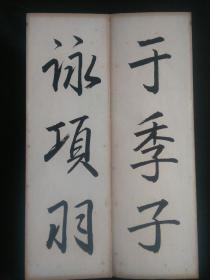 于季子
詠項羽